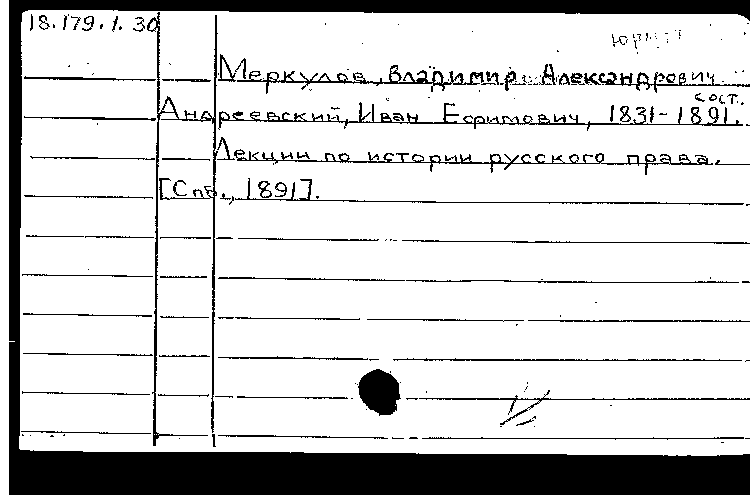 18.179.1.30
Меркулов, Владимир Александрович
сост.
Андреевский, Иван Ефимович, 1831-1891.
Лекции по истории русского права.
[Спб., 1891].